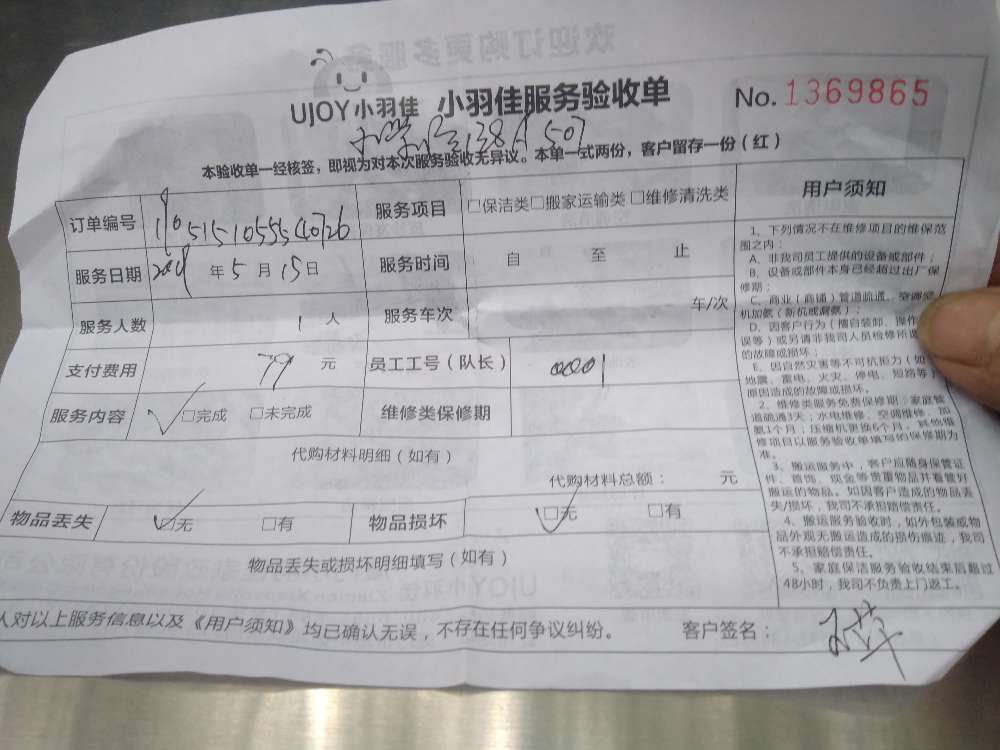 UJOY小羽佳 小羽佳服务验收单 No.1369865
138 507
本验收单一经核签，即视为对本次服务验收无异议。本单一式两份，客户留存一份（红）
订单编号 服务项目 □保洁类□搬家运输类□维修清洗类
服务日期 2019年5月15日 服务时间 自 至 止
服务人数 1人 服务车次 车/次
支付费用 79元 员工工号（队长） 0001
服务内容 □完成 □未完成 维修类保修期
代购材料明细（如有）
代购材料总额： 元
物品丢失 □无 □有 物品损坏 □无 □有
物品丢失或损坏明细填写（如有）
人对以上服务信息以及《用户须知》均已确认无误，不存在任何争议纠纷。 客户签名：
用户须知
1、下列情况不在维修项目的维保范
围之内：
A、非我司员工提供的设备或部件；
B、设备或部件本身已经超过出厂保
修期；
C、商业（商铺）管道疏通、空调空
机加氨（新机或漏氨）；
D、因客户行为（擅自装卸、操作
误等）或另请非我司人员检修所
的故障或损坏；
E、因自然灾害等不可抗拒力（如
地震、雷电、火灾、停电、短路等
原因造成的故障或损坏。
2、维修类服务免费保修期：家庭管
道疏通3天；水电维修、空调维修、加
氨1个月；压缩机更换6个月，其他维
修项目以服务验收单填写的保修期为
准。
3、搬运服务中，客户应随身保管证
件、首饰、现金等贵重物品并看管好
搬运的物品。如因客户造成的物品丢
失/损坏，我司不承担赔偿责任。
4、搬运服务验收时，如外包装或物
品外观无搬运造成的损伤痕迹，我司
不承担赔偿责任。
5、家庭保洁服务验收结束后超过
48小时，我司不负责上门返工。